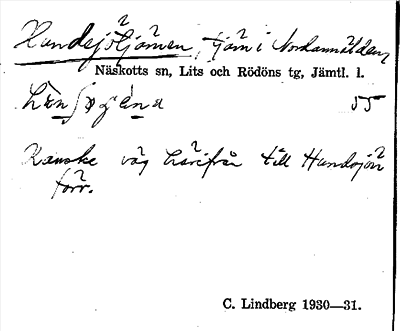 Hundsjötjärnen, tjärn i Nordannälden,
Näskotts sn, Lits och Rödöns tg, Jämtl. l.
55
Kanske väg härifrån till Hundsjön
förr.
C. Lindberg 1930—31.